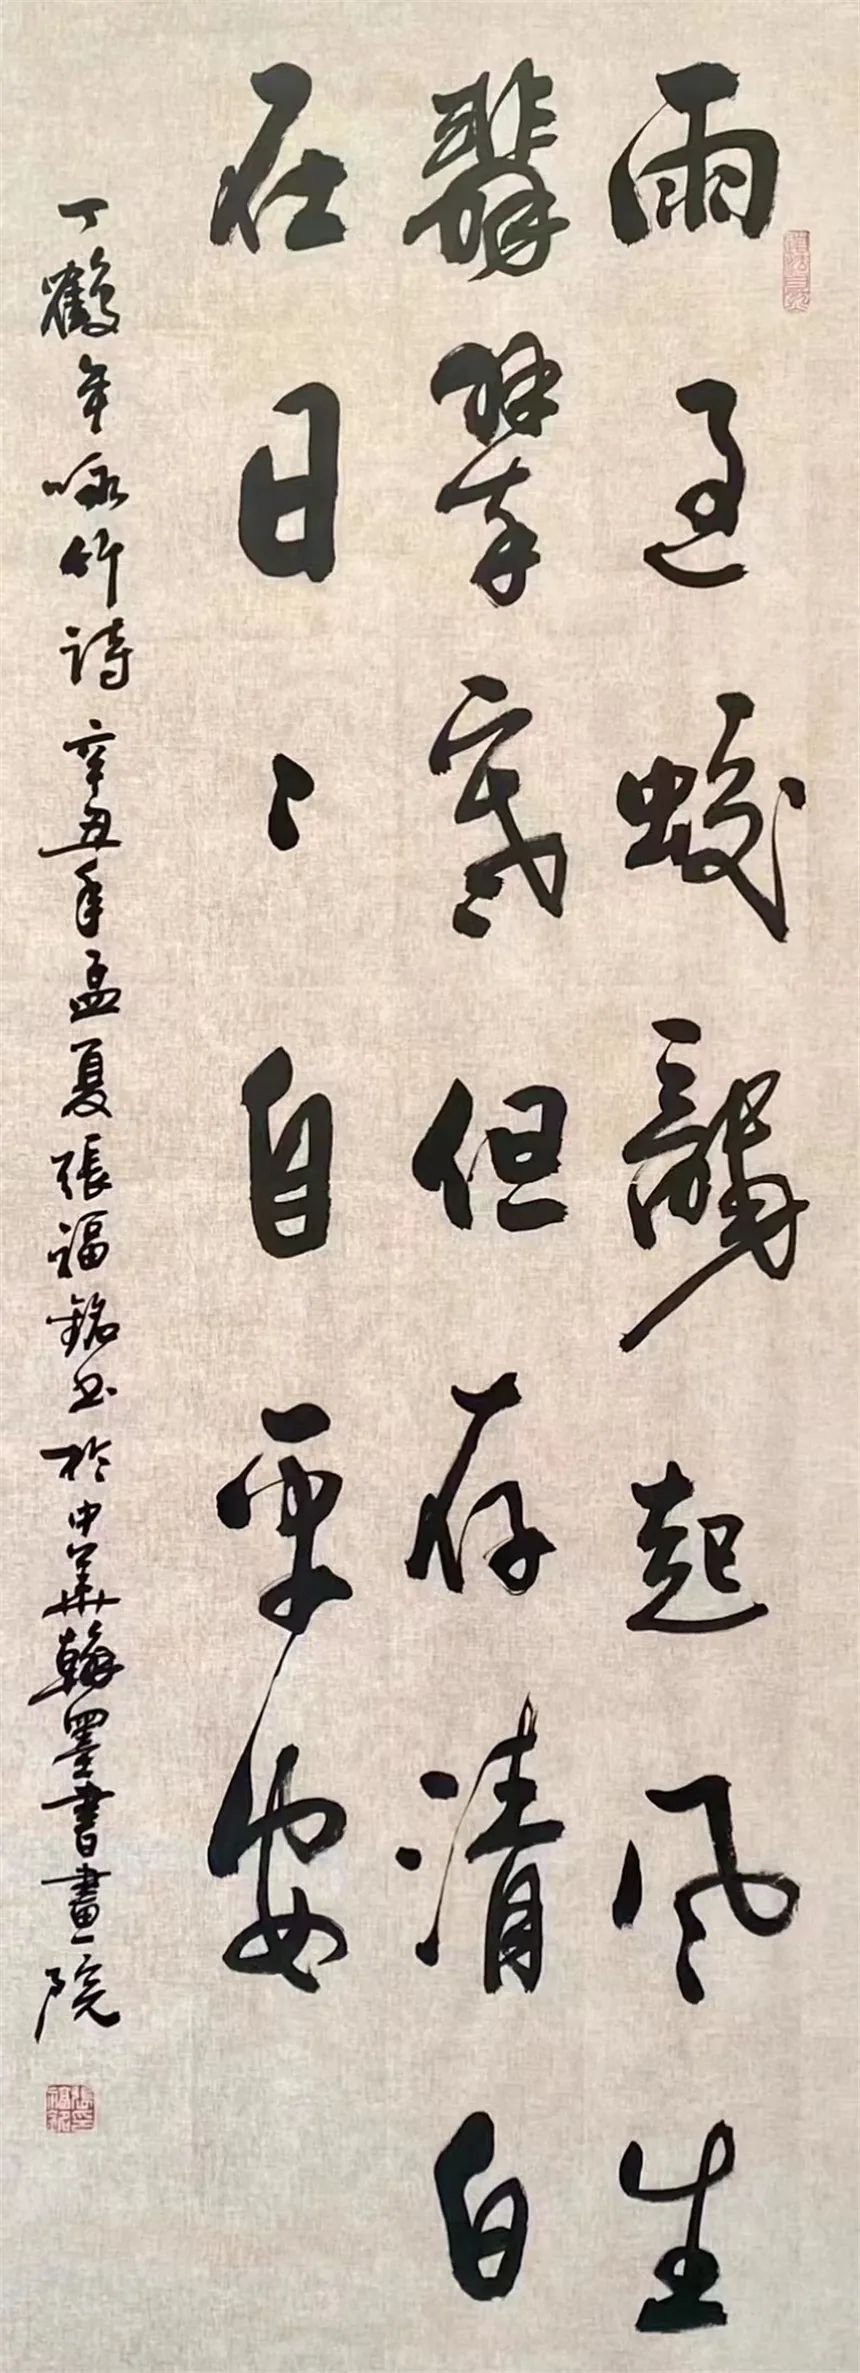 雨過蛟龍起風生
翡翠寒但存清白
在日〻自平安
丁鶴年咏竹詩辛丑年孟夏張福銘書於中華翰墨書畫院
張福銘印